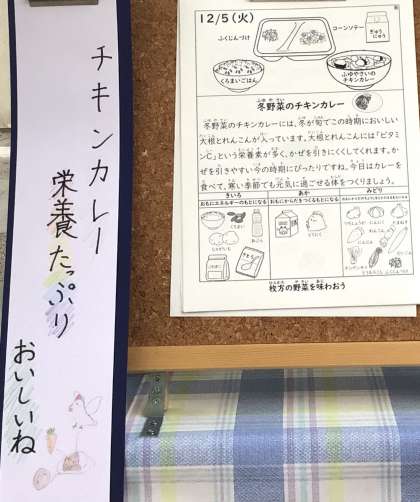 チキンカレー
栄養たっぷり
おいしいね
12/5(火)
ふくじんづけ
コーンソテー
ぎゅうにゅう
くろまいごはん
ふゆやさいのチキンカレー
冬野菜のチキンカレー
冬野菜のチキンカレーには、冬が旬でこの時期においしい
大根とれんこんが入っています。大根とれんこんには「ビタミ
ンC」という栄養素が多く、かぜを引きにくくしてくれます。か
ぜを引きやすい今の時期にぴったりですね。今日はカレーを
食べて、寒い季節でも元気に過ごせる体をつくりましょう。
きいろ
あか
みどり
おもにエネルギーのもとになる
おもにからだをつくるもとになる
くろまい
とりにく
にんじん
枚方の野菜を味わおう